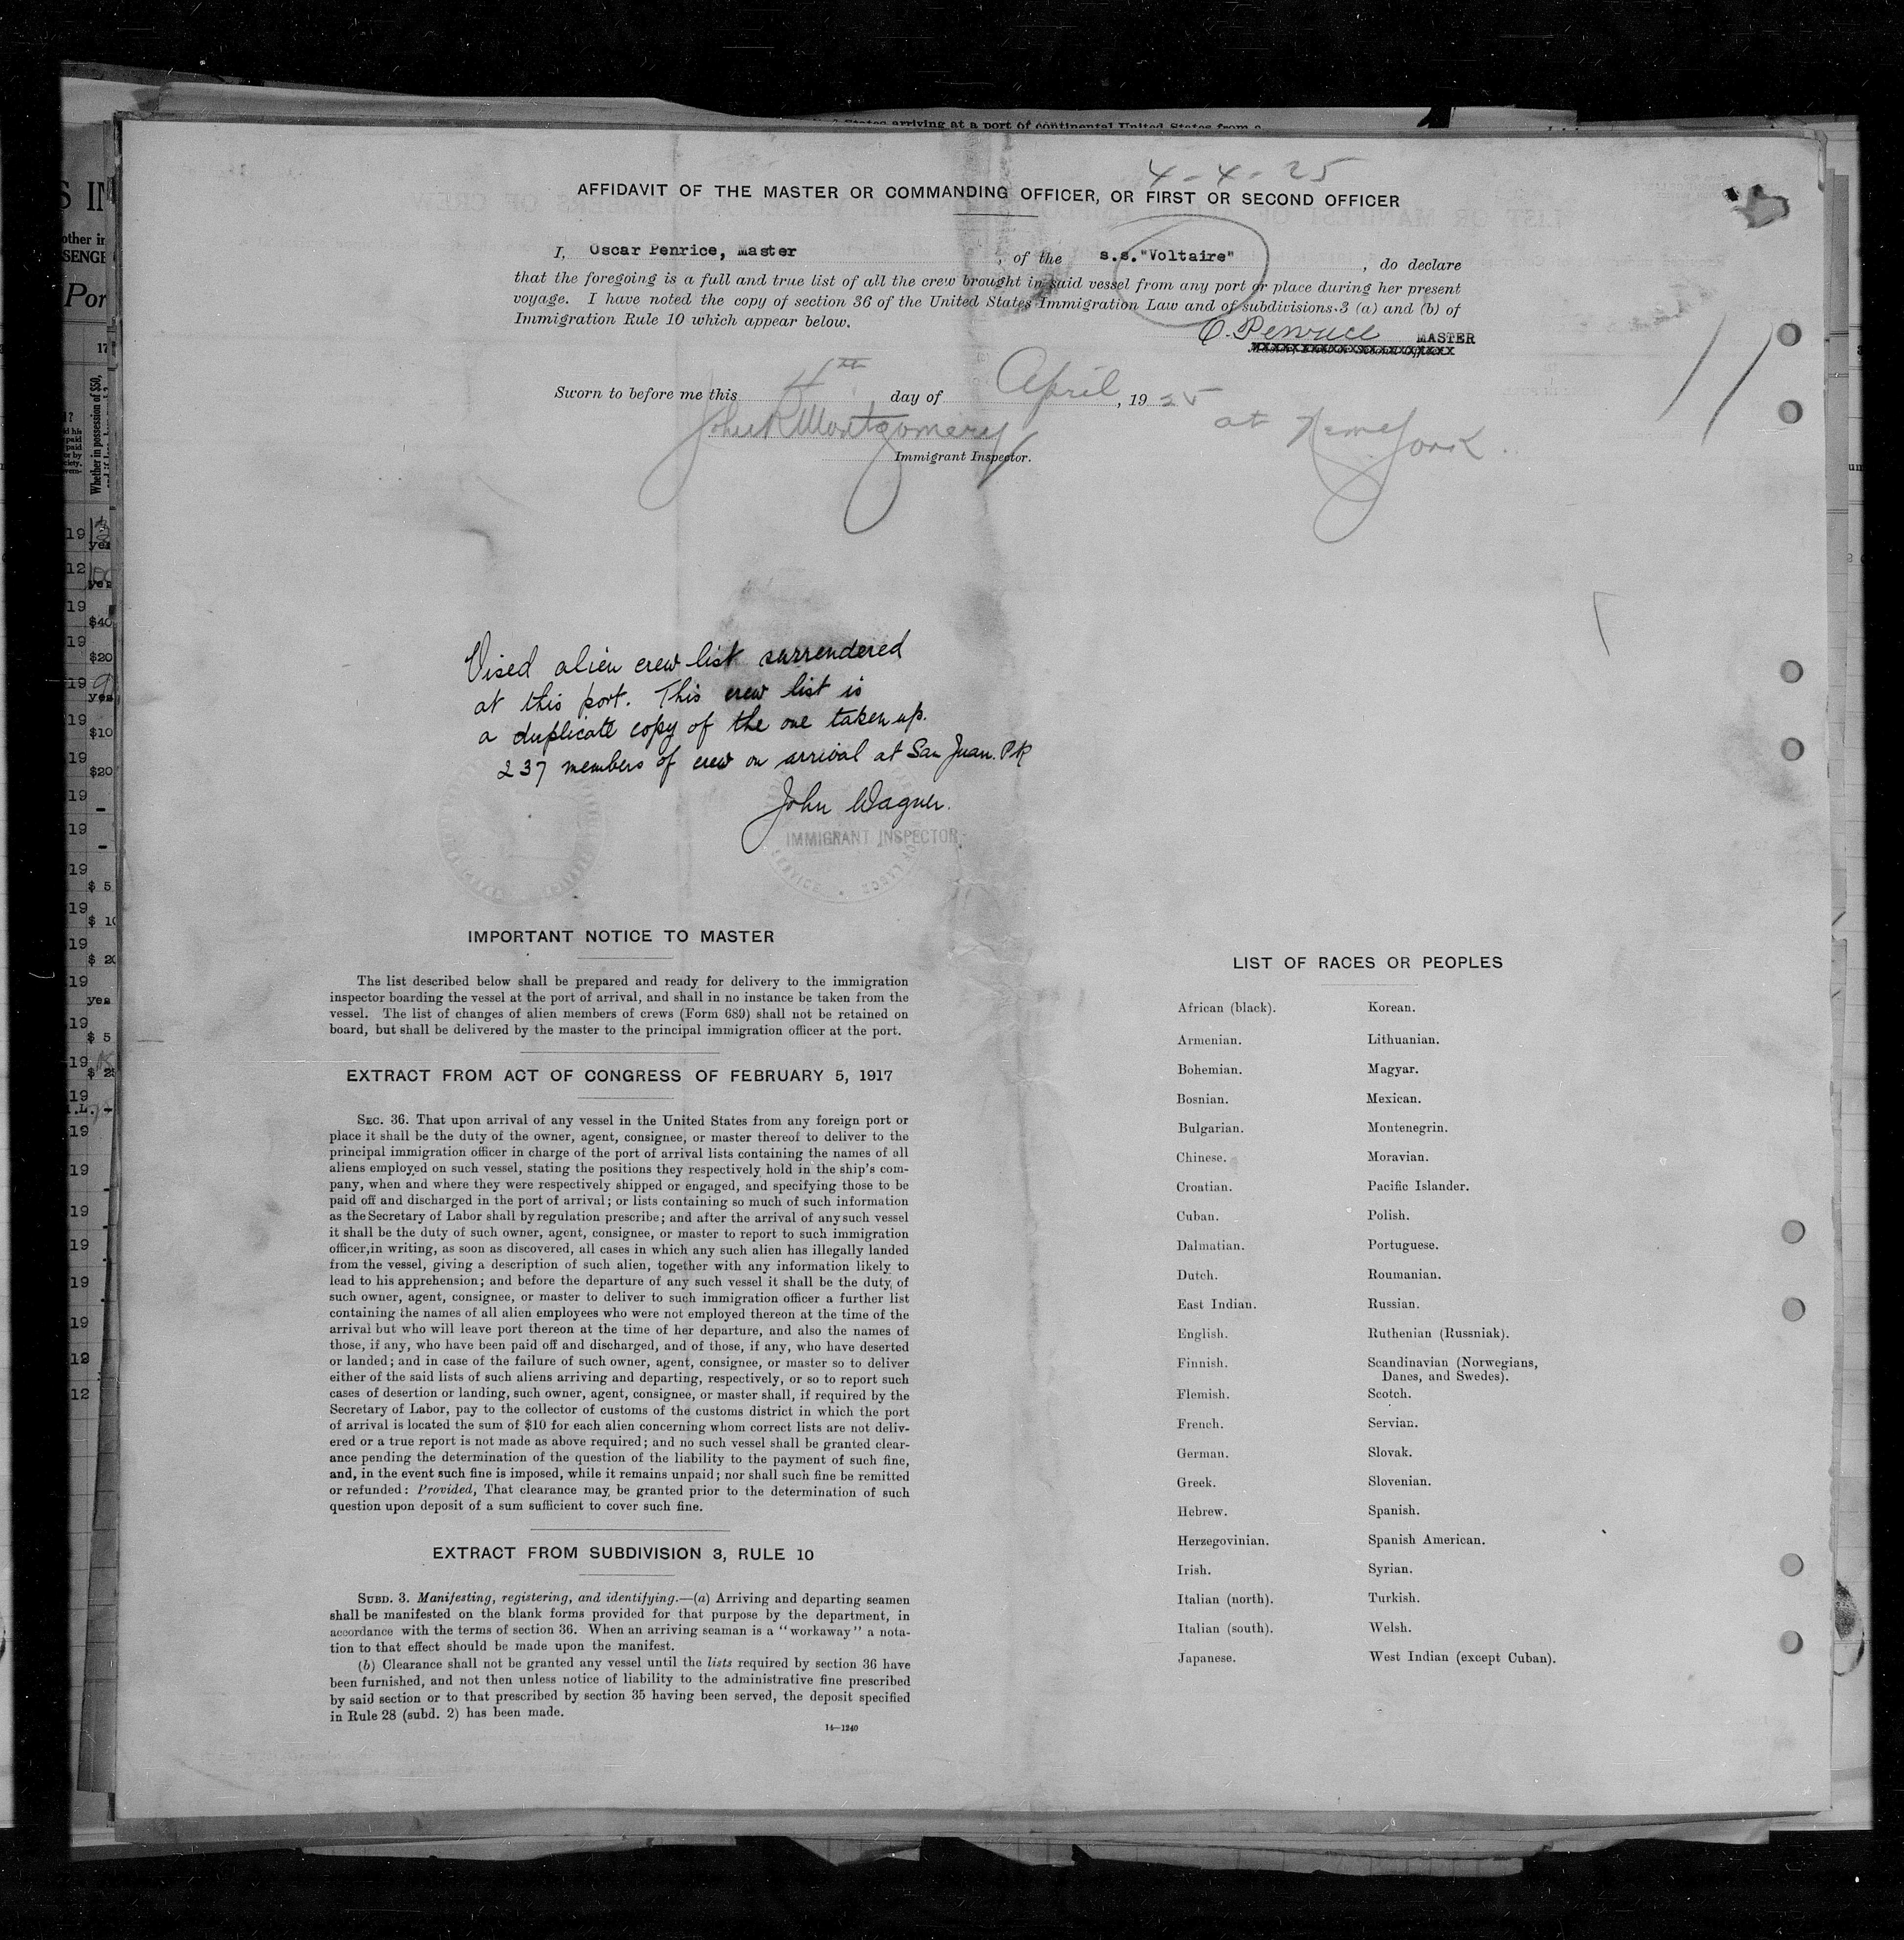 arriving at a port of continental United States from a
4-4-25
AFFIDAVIT OF THE MASTER OR COMMANDING OFFICER, OR FIRST OR SECOND OFFICER
I, Oscar Penrice, Master, of the s.s."Voltaire", do declare
that the foregoing is a full and true list of all the crew brought in said vessel from any port or place during her present
voyage. I have noted the copy of section 36 of the United States Immigration Law and of subdivisions 3 (a) and (b) of
Immigration Rule 10 which appear below.
O. Penrice MASTER
Sworn to before me this 4th day of April, 1925 at New York.
John R Montgomery
Immigrant Inspector.
11
Vised alien crew list surrendered
at this port. This crew list is
a duplicate copy of the one taken up.
237 members of crew on arrival at San Juan. PR
John Wagner.
IMMIGRANT INSPECTOR
IMPORTANT NOTICE TO MASTER
The list described below shall be prepared and ready for delivery to the immigration
inspector boarding the vessel at the port of arrival, and shall in no instance be taken from the
vessel. The list of changes of alien members of crews (Form 689) shall not be retained on
board, but shall be delivered by the master to the principal immigration officer at the port.
EXTRACT FROM ACT OF CONGRESS OF FEBRUARY 5, 1917
SEC. 36. That upon arrival of any vessel in the United States from any foreign port or
place it shall be the duty of the owner, agent, consignee, or master thereof to deliver to the
principal immigration officer in charge of the port of arrival lists containing the names of all
aliens employed on such vessel, stating the positions they respectively hold in the ship's com-
pany, when and where they were respectively shipped or engaged, and specifying those to be
paid off and discharged in the port of arrival; or lists containing so much of such information
as the Secretary of Labor shall by regulation prescribe; and after the arrival of any such vessel
it shall be the duty of such owner, agent, consignee, or master to report to such immigration
officer, in writing, as soon as discovered, all cases in which any such alien has illegally landed
from the vessel, giving a description of such alien, together with any information likely to
lead to his apprehension; and before the departure of any such vessel it shall be the duty of
such owner, agent, consignee, or master to deliver to such immigration officer a further list
containing the names of all alien employees who were not employed thereon at the time of the
arrival but who will leave port thereon at the time of her departure, and also the names of
those, if any, who have been paid off and discharged, and of those, if any, who have deserted
or landed; and in case of the failure of such owner, agent, consignee, or master so to deliver
either of the said lists of such aliens arriving and departing, respectively, or so to report such
cases of desertion or landing, such owner, agent, consignee, or master shall, if required by the
Secretary of Labor, pay to the collector of customs of the customs district in which the port
of arrival is located the sum of $10 for each alien concerning whom correct lists are not deliv-
ered or a true report is not made as above required; and no such vessel shall be granted clear-
ance pending the determination of the question of the liability to the payment of such fine,
and, in the event such fine is imposed, while it remains unpaid; nor shall such fine be remitted
or refunded: Provided, That clearance may be granted prior to the determination of such
question upon deposit of a sum sufficient to cover such fine.
EXTRACT FROM SUBDIVISION 3, RULE 10
SUBD. 3. Manifesting, registering, and identifying.—(a) Arriving and departing seamen
shall be manifested on the blank forms provided for that purpose by the department, in
accordance with the terms of section 36. When an arriving seaman is a "workaway" a nota-
tion to that effect should be made upon the manifest.
(b) Clearance shall not be granted any vessel until the lists required by section 36 have
been furnished, and not then unless notice of liability to the administrative fine prescribed
by said section or to that prescribed by section 35 having been served, the deposit specified
in Rule 28 (subd. 2) has been made.
14—1240
LIST OF RACES OR PEOPLES
African (black).
Armenian.
Bohemian.
Bosnian.
Bulgarian.
Chinese.
Croatian.
Cuban.
Dalmatian.
Dutch.
East Indian.
English.
Finnish.
Flemish.
French.
German.
Greek.
Hebrew.
Herzegovinian.
Irish.
Italian (north).
Italian (south).
Japanese.
Korean.
Lithuanian.
Magyar.
Mexican.
Montenegrin.
Moravian.
Pacific Islander.
Polish.
Portuguese.
Roumanian.
Russian.
Ruthenian (Russniak).
Scandinavian (Norwegians,
Danes, and Swedes).
Scotch.
Servian.
Slovak.
Slovenian.
Spanish.
Spanish American.
Syrian.
Turkish.
Welsh.
West Indian (except Cuban).